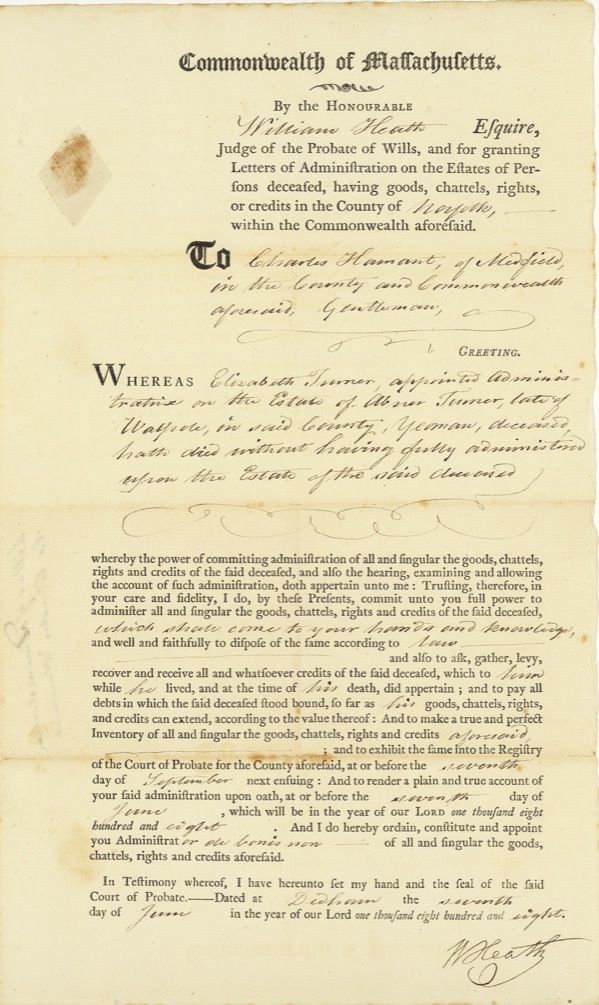 Commonwealth of Maſſachuſetts.
By the HONOURABLE
William Heath Eſquire,
Judge of the Probate of Wills, and for granting
Letters of Adminiſtration on the Eſtates of Per-
ſons deceaſed, having goods, chattels, rights,
or credits in the County of Norfolk,
within the Commonwealth aforeſaid.
To Charles Hamant, of Medfield,
in the County and Commonwealth
aforesaid, Gentleman,
GREETING.
WHEREAS Elizabeth Turner, appointed Adminis-
tratrix on the Estate of Abner Turner, late of
Walpole, in said County, Yeoman, deceased,
hath died without having fully administered
upon the Estate of the said deceased
whereby the power of committing adminiſtration of all and ſingular the goods, chattels,
rights and credits of the ſaid deceaſed, and alſo the hearing, examining and allowing
the account of ſuch adminiſtration, doth appertain unto me : Truſting, therefore, in
your care and fidelity, I do, by theſe Preſents, commit unto you full power to
adminiſter all and ſingular the goods, chattels, rights and credits of the ſaid deceaſed,
which shall come to your hands and knowledge,
and well and faithfully to diſpoſe of the ſame according to law
and alſo to aſk, gather, levy,
recover and receive all and whatſoever credits of the ſaid deceaſed, which to him
while he lived, and at the time of his death, did appertain ; and to pay all
debts in which the ſaid deceaſed ſtood bound, ſo far as his goods, chattels, rights,
and credits can extend, according to the value thereof : And to make a true and perfect
Inventory of all and ſingular the goods, chattels, rights and credits aforesaid,
; and to exhibit the ſame into the Regiſtry
of the Court of Probate for the County aforeſaid, at or before the seventh
day of September next enſuing : And to render a plain and true account of
your ſaid adminiſtration upon oath, at or before the seventh day of
June , which will be in the year of our LORD one thouſand eight
hundred and eight . And I do hereby ordain, conſtitute and appoint
you Adminiſtrat or de bonis non of all and ſingular the goods,
chattels, rights and credits aforeſaid.
In Teſtimony whereof, I have hereunto ſet my hand and the ſeal of the ſaid
Court of Probate.——Dated at Dedham the seventh
day of June in the year of our Lord one thouſand eight hundred and eight.
W Heath